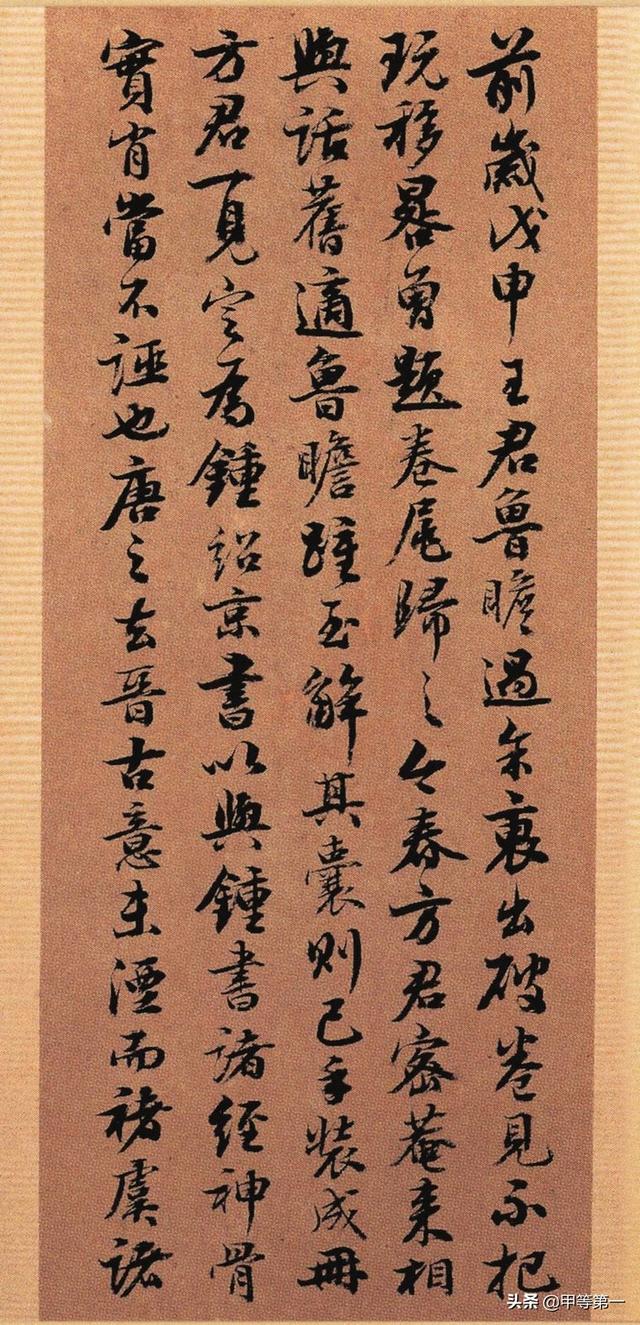 前歲戊申王君魯瞻過余裹出破卷見示把
玩移晷曾題卷尾歸之今春方君密菴来相
與話舊適魯瞻踵至解其囊則已手装成冊
方君一見定為鍾紹京書以與鍾書諸經神骨
實肖當不誣也唐之去晋古意未湮而褚虞諸
头条 @甲等第一